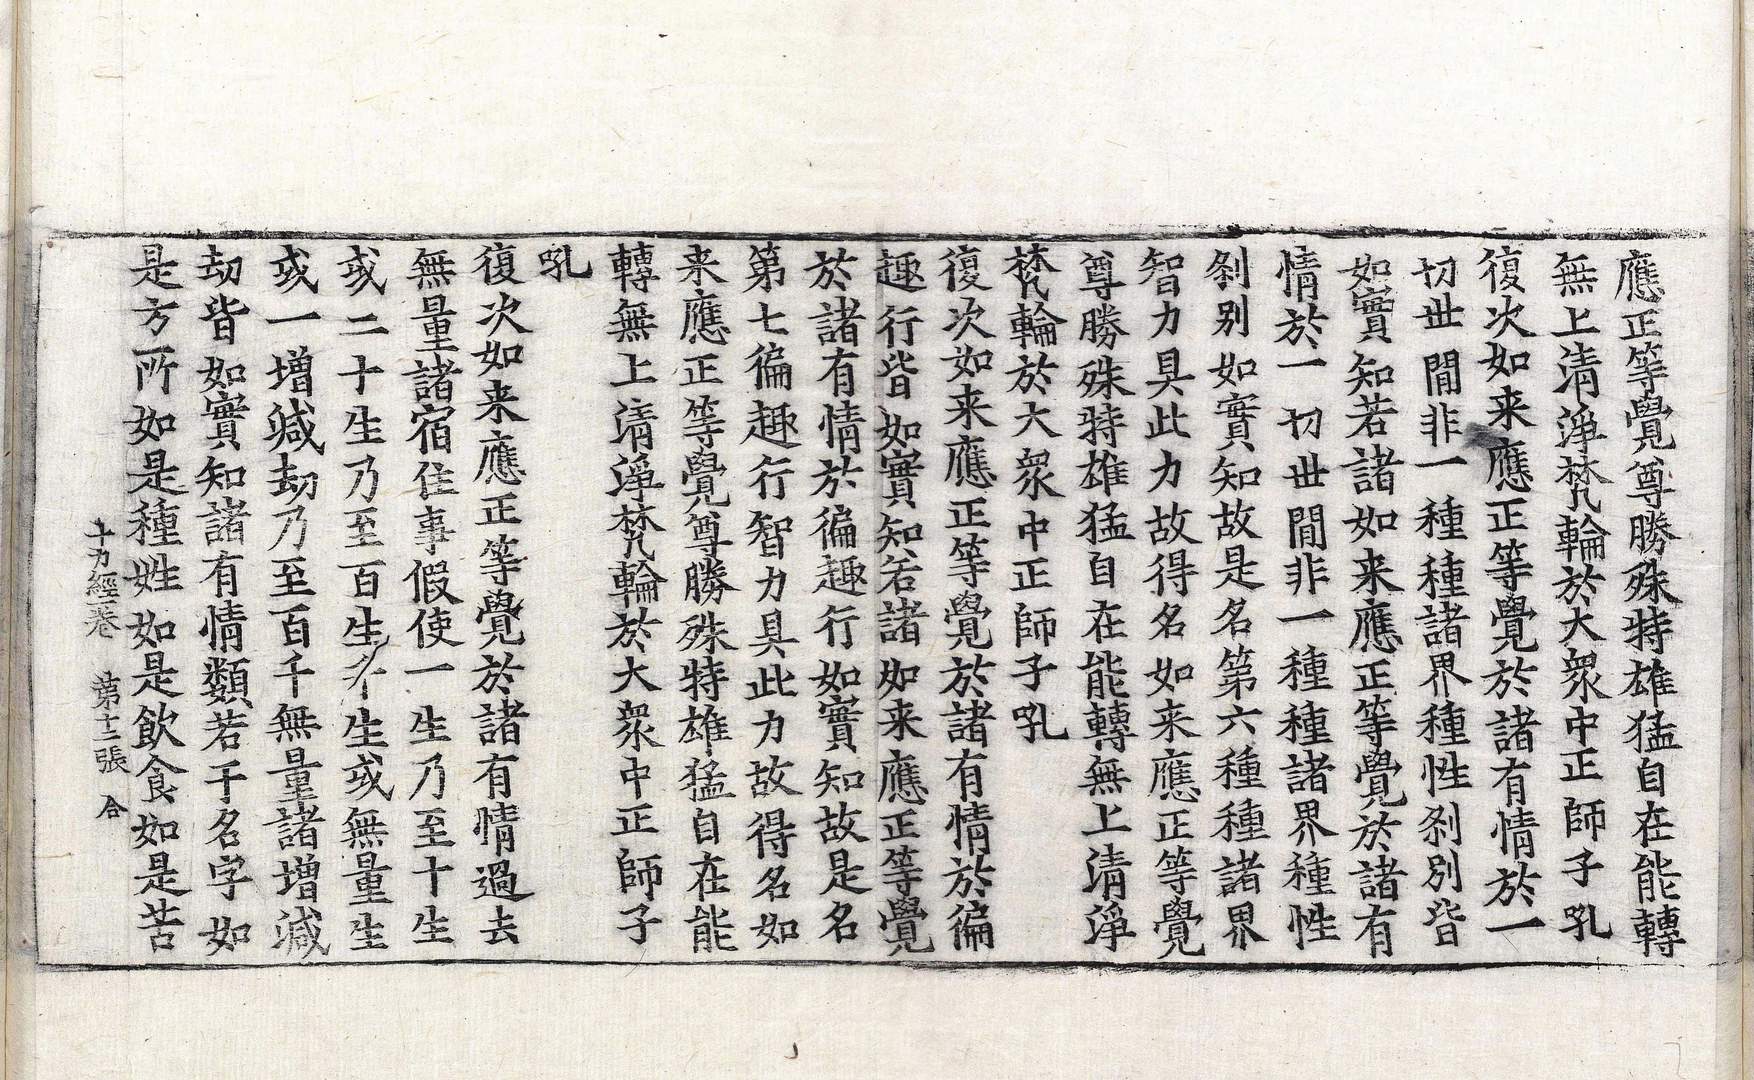 應正等覺尊勝殊特雄猛自在能轉
無上清淨梵輪於大衆中正師子吼
復次如来應正等覺於諸有情於一
切世間非一種種諸界種性剎别皆
如實知若諸如来應正等覺於諸有
情於一切世間非一種種諸界種性
剎别如實知故是名第六種種諸界
智力具此力故得名如来應正等覺
尊勝殊特雄猛自在能轉無上清淨
梵輪於大衆中正師子吼
復次如来應正等覺於諸有情於徧
趣行皆如實知若諸如来應正等覺
於諸有情於徧趣行如實知故是名
第七徧趣行智力具此力故得名如
来應正等覺尊勝殊特雄猛自在能
轉無上清淨梵輪於大衆中正師子
吼
復次如来應正等覺於諸有情過去
無量諸宿住事假使一生乃至十生
或二十生乃至百生多生或無量生
或一增減劫乃至百千無量諸增減
劫皆如實知諸有情類若干名字如
是方所如是種姓如是飲食如是苦
十力經一卷　第十二張　合